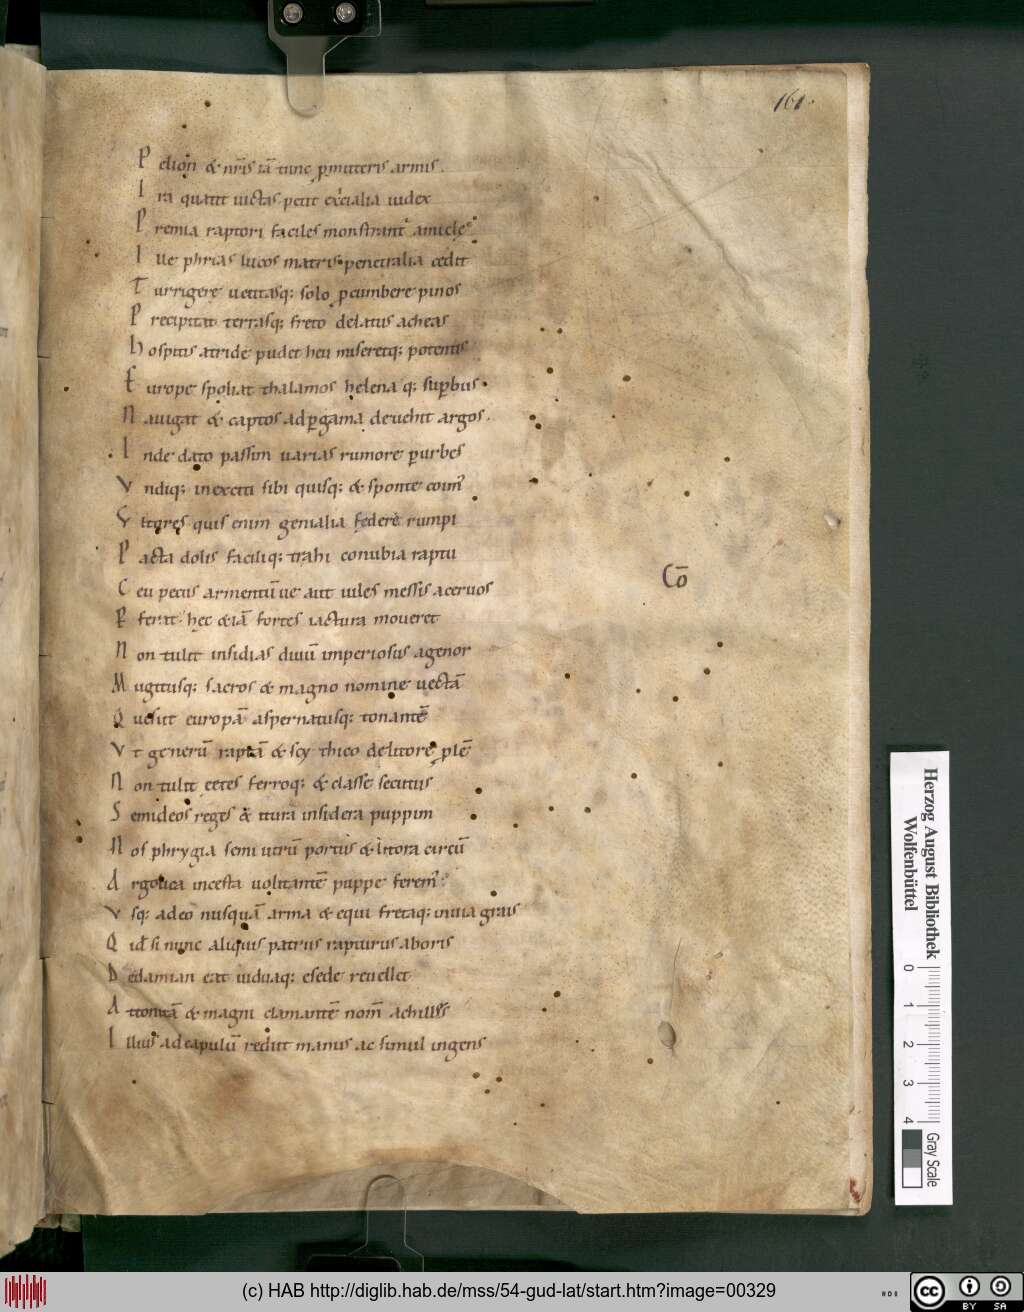 161.
Pelion & nr̄is iā tunc pmitteris armis.
Ira quatit uictas petit exitialia iudex
Premia raptori faciles monstrant amicle
Iue phrias lucos matris penetralia cedit
Turrigere uetitasq; solo pcumbere pinos
Precipitat terrasq; freto delatus acheas
hospitis atride pudet heu miseretq; potentis
Europe spoliat thalamos helena q; supbus
Nauigat & captos ad pgama deuehit argos.
Inde dato passim uarias rumore p urbes
Vndiq; inexciti sibi quisq; & sponte coim̄
Vltores quis enim genialia federe rumpi
Pacta dolis faciliq; trahi conubia raptu
Ceu pecus armentū ue aut uiles messis aceruos
Co̅
Pferat hec &iā fortes iactura moueret
Non tulit insidias diuū imperiosus agenor
Mugitusq; sacros & magno nomine uectā
Quesiit europā aspernatusq; tonantē
Vt generū raptā & scy thico de litore plē
Non tulit eetes ferroq; & classe secutus
Semideos reges & itura insidera puppim
Nos phrygia semi uirū portus & litora circū
Argolica incesta uolitantē puppe ferem̄
Vsq; adeo nusquā arma & equi fretaq; inuia grais
Qid si nunc aliquis patriis rapturus aboris
Dedamian eat uiduaq; esede reuellet
Attonitā & magni clamantē nom̄ achillis
Illius ad capulū rediit manus ac simul ingens
Herzog August Bibliothek
Wolfenbüttel
0 1 2 3 4
Gray Scale
(c) HAB http://diglib.hab.de/mss/54-gud-lat/start.htm?image=00329
cc BY SA